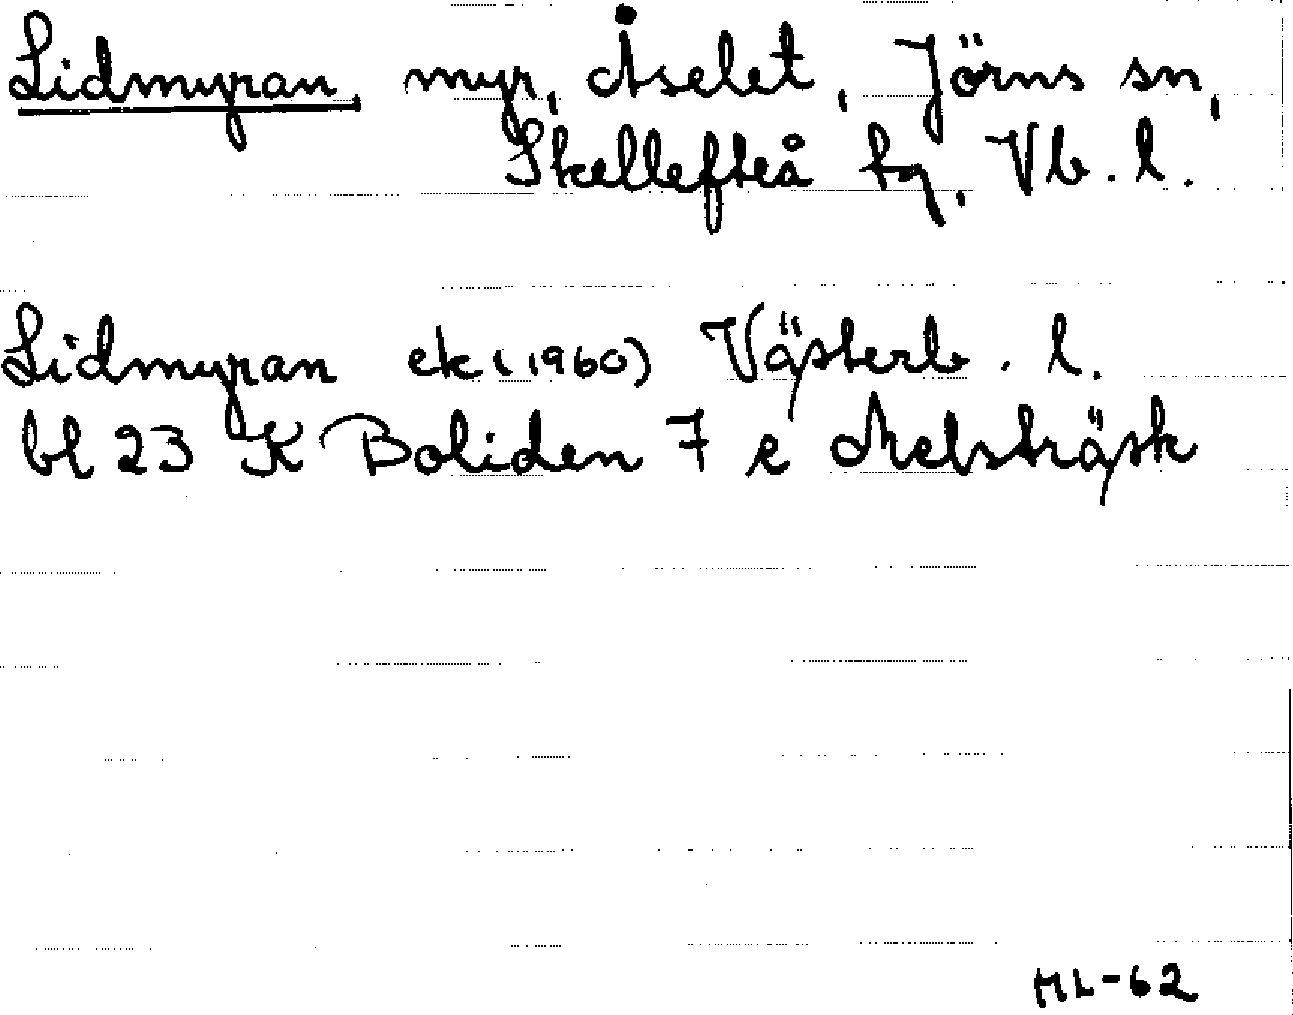 Lidmyran, myr, Åselet, Jörns sn,
Skellefteå tg, Vb. l.
Lidmyran ek (1960) Västerb. l.
bl 23 K Boliden 7 e Mebsträsk
ML-62